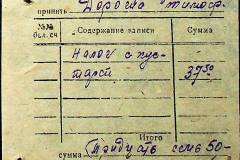 принять Дорогие
№№ бал. сч Содержание записи Сумма
Налог с
37 50
Итого
сумма Тридцать семь 50-